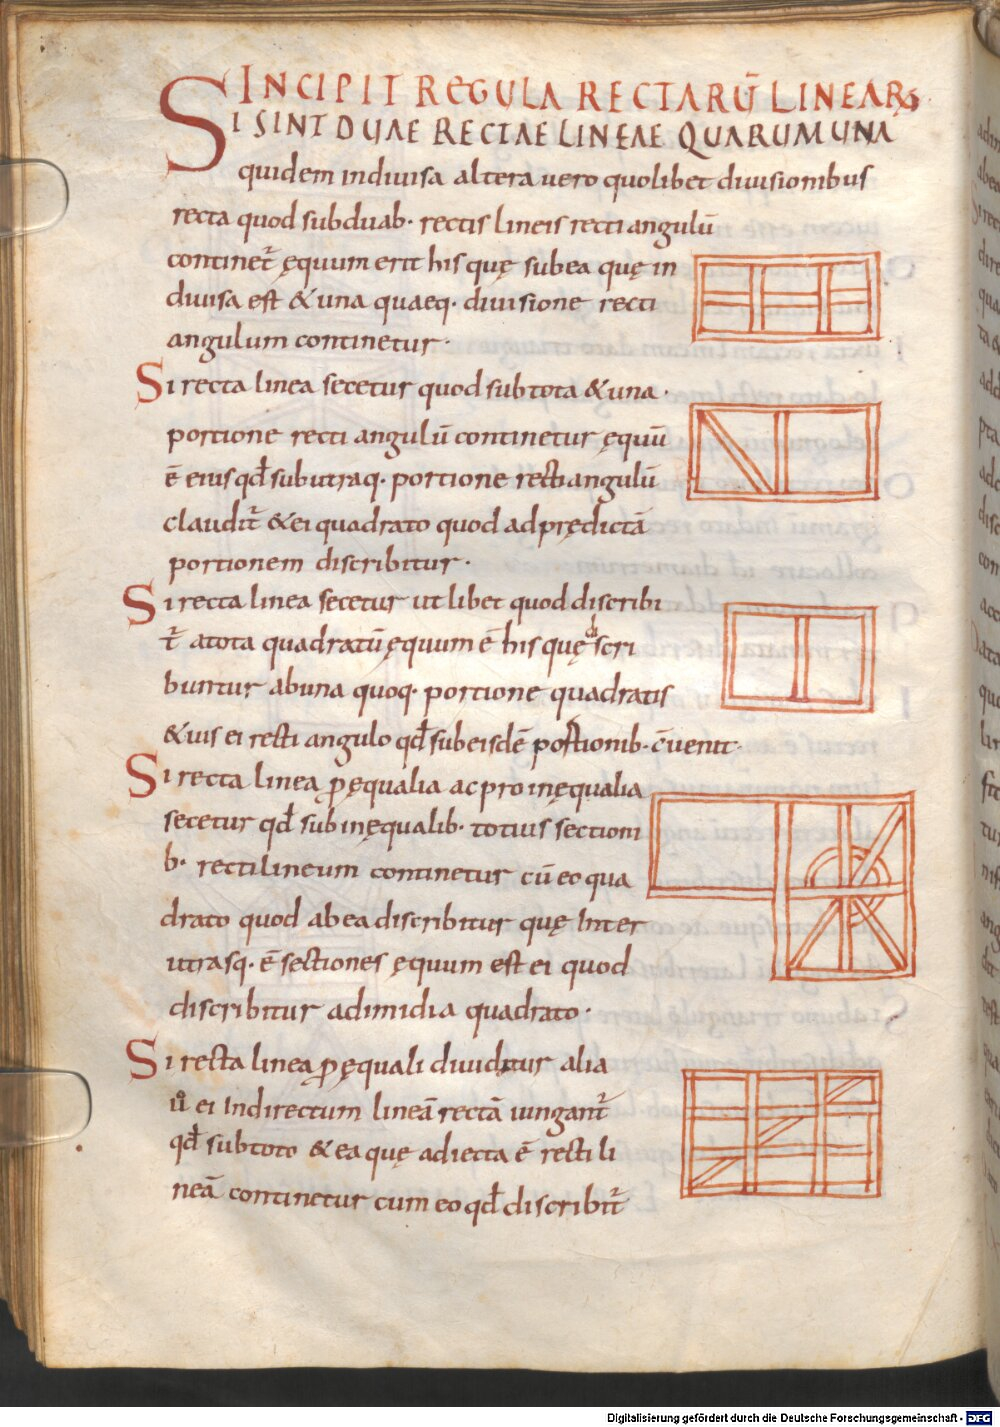 INCIPIT REGULA RECTARŪ LINEARꝜ
SI SINT DUAE RECTAE LINEAE QUARUM UNA
quidem indiuisa altera uero quolibet diuisionibus
recta quod subduab· rectis lineis recti angulū
continet̄ ęquum erit his quę subea quę in
diuisa est & una quaeq· diuisione recti
angulum continetur·
Si recta linea secetur quod subtota & una·
portione recti angulū continetur ęquū
ē ei us qd̄ subutraq· portione rectiangulū
claudit̄ & ei quadrato quod adprędictā
portionem discribitur·
Si recta linea secetur ut libet quod discribi
t̄ atota quadratū ęquum ē his quę discri
buntur abuna quoq· portione quadratis
& uis ei recti angulo qd̄ subeisdē portionib· cuenit·
Si recta linea p̱ ęqualia ac pro inęqualia
secetur qd̄ sub inęqualib· totius sectioni
b· rectilineum continetur cū eo qua
drato quod abea discribitur quę Inter
utrasq· ē sectiones ęquum est ei quod
discribitur adimidia quadrato·
Si recta linea p̱ ęquali diuiditur alia
ū ei Indirectum lineā rectā iungant̄
qd̄ subtoto & ea quę adiecta ē recti li
neā continetur cum eo qd̄ discribit̄
Digitalisierung gefördert durch die Deutsche Forschungsgemeinschaft - DFG